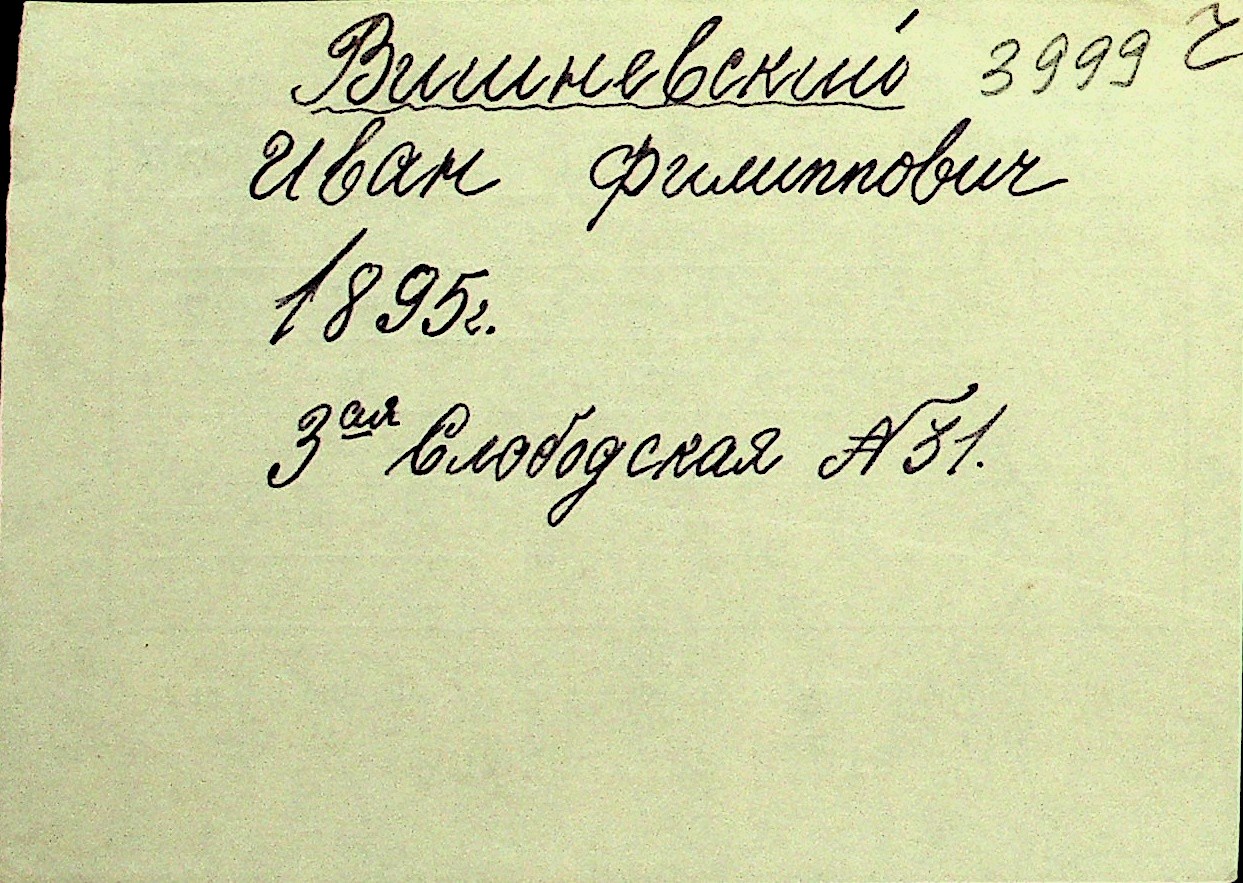 Вишневский 3999 г
Иван Филиппович
1895г.
3ая Слободская №31.